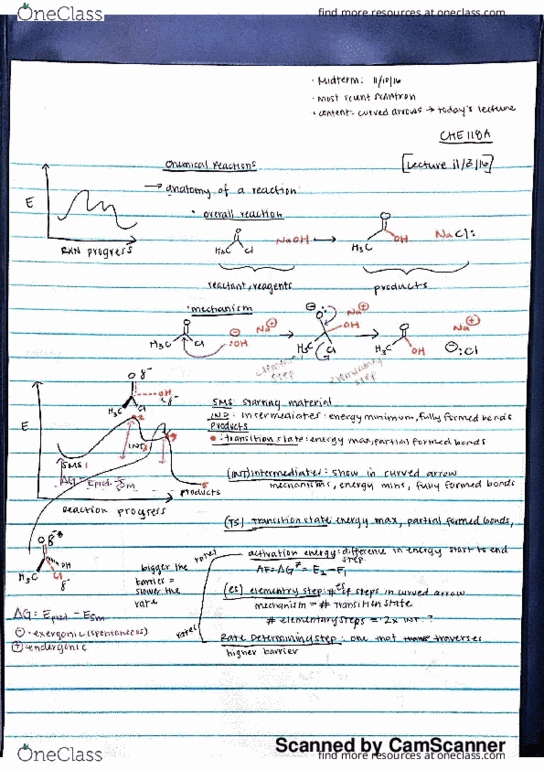 OneClass
find more resources at oneclass.com
· Midterm: 11/10/16
· most recent scantron
· content: curved arrows → today's lecture
CHE118A
[Lecture 11/8/16]
Chemical reactions
→ anatomy of a reaction:
· overall reaction
E
RXN progress
O
H₃C Cl
NaOH →
O
H₃C OH
NaCl:
reactant, reagents
products
· mechanism
O
H₃C Cl
⊖:OH
Na⊕ →
⊖
:O:
OH
H₃C Cl
Na⊕
→
O
H₃C OH
Na⊕
⊖:Cl
elementary step
elementary step
O δ⁻
OH
δ⁻
H₃C Cl
E
SMS
INT
products
Reaction progress
SMS: starting material
IND: Intermediates: energy minimum, fully formed bonds
products
• : transition state: energy max, partial formed bonds
(INT) intermediates: show in curved arrow
mechanisms, energy mins, fully formed bonds
(TS) transition state: energy max, partial formed bonds,
O
OH
H₃C
Cl
δ⁻
bigger the
barrier =
slower the
rate
rates
rates
activation energy: difference in energy start to end
step
= ΔG‡ = E₂ - E₁
(ES) elementry step: # of steps in curved arrow
mechanism = # transition state
# elementary steps = 2x INT. ?
Rate Determining step: one that traverses
higher barrier
ΔG = Eprod - Esm
⊖ · exergonic (spontaneous)
⊕ · endergonic
Scanned by CamScanner
OneClass
find more resources at oneclass.com